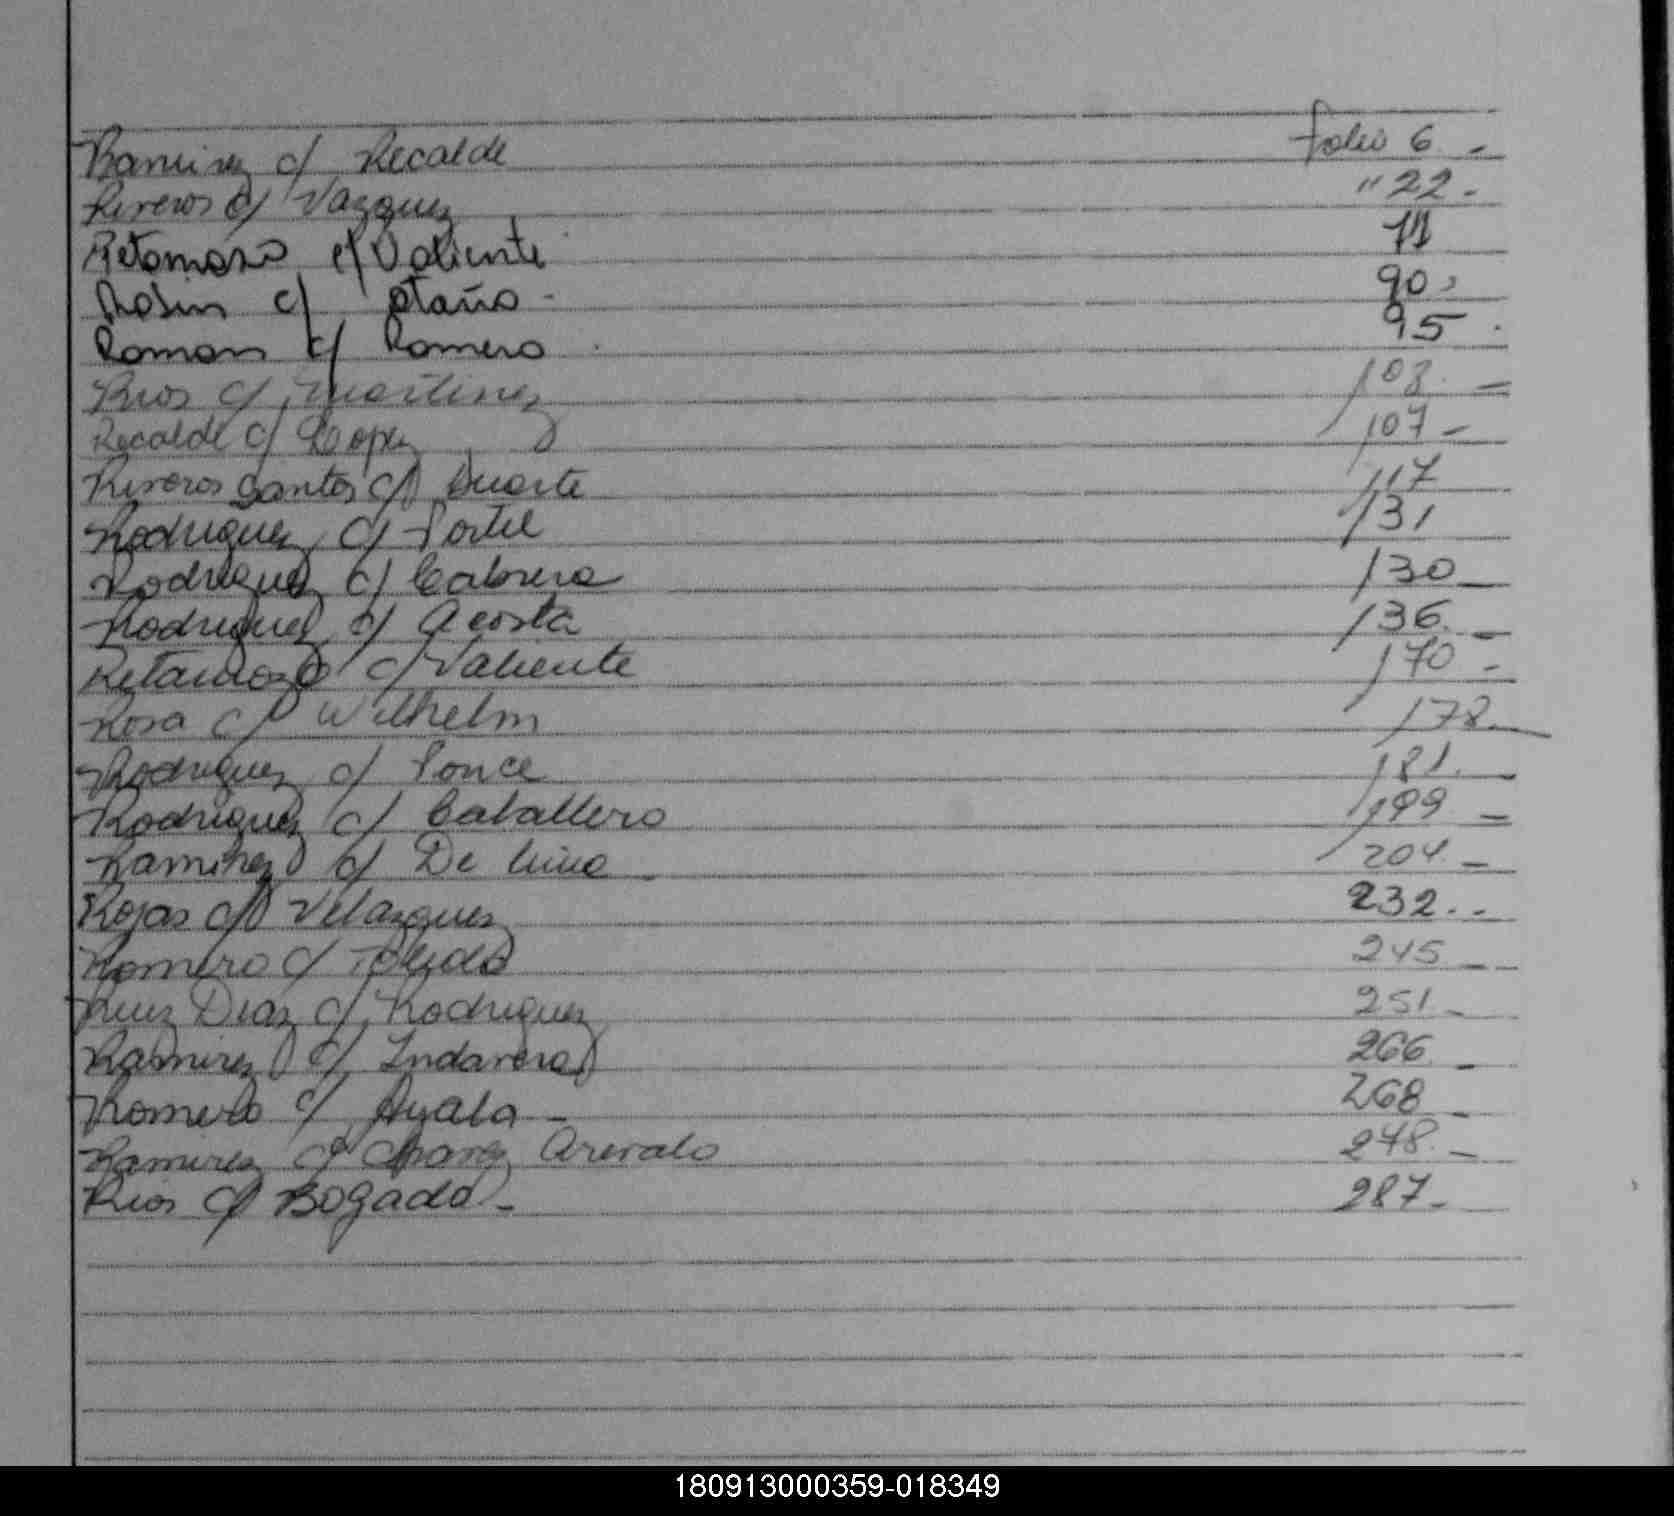 Ramirez c/ Recalde folio 6 -
Riveros c/ Vazquez " 22 -
Retamoso c/ Valiente
Rolin c/ Otaño - 90
Roman c/ Romero 95
Rios c/ Martinez
Recalde c/ Lopez 107 -
Riveros Santos c/ Duarte 117
Rodriguez c/ Portil 131
Rodriguez c/ Cabrera 130 -
Rodriguez c/ Acosta 136 -
Retamozo c/ Valiente 170 -
Rosa c/ Wilhelm 178 -
Rodriguez c/ Ponce 181 -
Rodriguez c/ Caballero 199 -
Ramirez c/ De 204 -
Rojas c/ Velazquez 232 -
Romero c/ Toledo 245 -
Ruiz Diaz c/ Rodriguez 251 -
Ramirez c/ 266 -
Romero c/ Ayala - 268 -
Ramirez c/ Chavez Arevalo 278 -
Rios c/ Bogado - 287 -
180913000359-018349